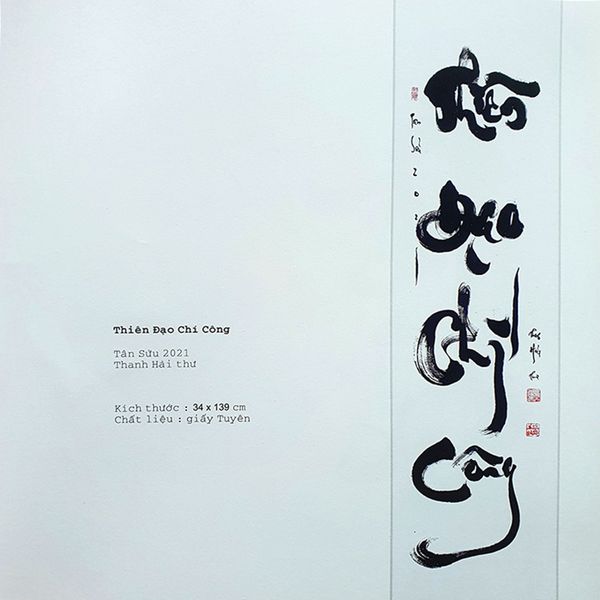 Thiên Đạo Chí Công
Tân Sửu 2021
Thanh Hải thư
Kích thước : 34 x 139 cm
Chất liệu : giấy Tuyên
Thiên
Đạo
Chí
Công
Tân Sửu 2021